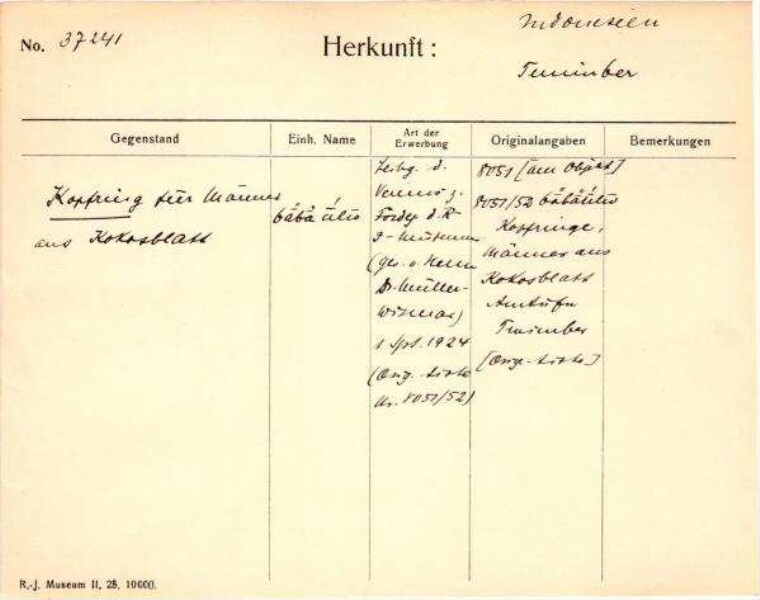 No. 37241
Herkunft:
Indonesien
Timimber
Gegenstand
Einh. Name
Art der
Erwerbung
Originalangaben
Bemerkungen
Kopfring für Männer
aus Kokosblatt
Leihg. d.
Vereins z.
d. R-
J-Museum
(ges. v. Herrn
Dr. Müller-
Wismar)
1 Spt. 1924
(Orig.-Liste
Nr. 8051/52)
8051 [am Objekt]
8051/52
Kopfringe,
Männer aus
Kokosblatt
[Orig.-Liste]
R.-J. Museum II, 25, 10000.